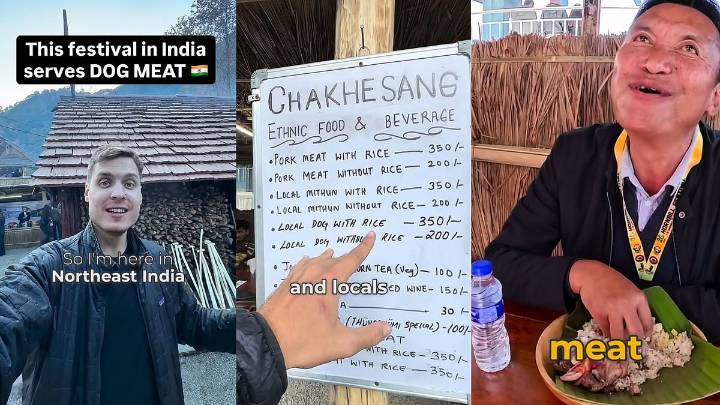 This festival in India
serves DOG MEAT 🇮🇳
So I'm here in
Northeast India
CHAKHESANG
ETHNIC FOOD & BEVERAGE
• PORK MEAT WITH RICE — 350/-
• PORK MEAT WITHOUT RICE — 200/-
• LOCAL MITHUN WITH RICE — 350/-
• LOCAL MITHUN WITHOUT RICE — 200/-
• LOCAL DOG WITH RICE — 350/-
• LOCAL DOG WITHOUT RICE — 200/-
RN TEA (Veg) — 100/-
and locals
CED WINE — 150/-
A — 30/-
SPECIAL) — 100/-
AT
WITH RICE — 350/-
RICE — 350/-
meat